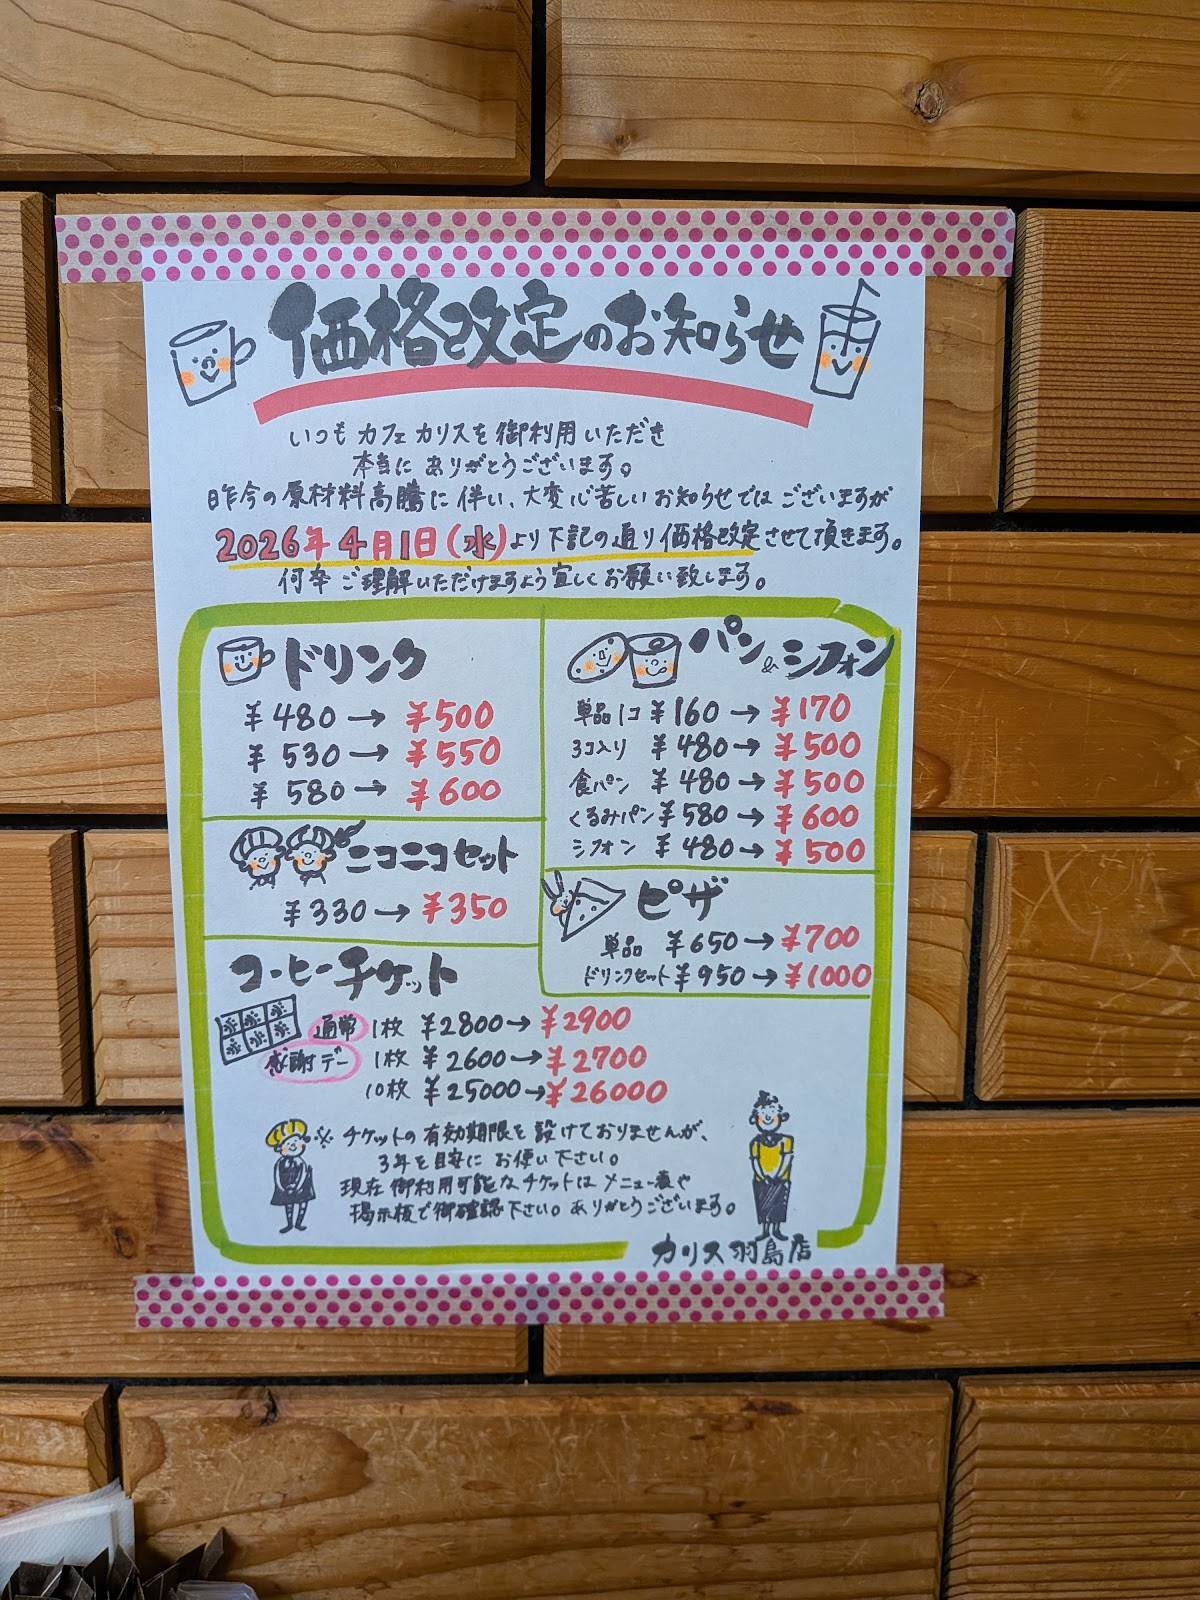 価格改定のお知らせ
いつもカフェカリスを御利用いただき
本当にありがとうございます。
昨今の原材料高騰に伴い、大変心苦しいお知らせではございますが
2026年4月1日(水)より下記の通り価格改定させて頂きます。
何卒ご理解いただけますよう宜しくお願い致します。
ドリンク
¥480→¥500
¥530→¥550
¥580→¥600
ニコニコセット
¥330→¥350
パン&シフォン
単品1コ ¥160→¥170
3コ入り ¥480→¥500
食パン ¥480→¥500
くるみパン ¥580→¥600
シフォン ¥480→¥500
ピザ
単品 ¥650→¥700
ドリンクセット ¥950→¥1000
コーヒーチケット
通常 1枚 ¥2800→¥2900
感謝デー 1枚 ¥2600→¥2700
10枚 ¥25000→¥26000
※チケットの有効期限を設けておりませんが、
3年を目安にお使い下さい。
現在御利用可能なチケットはメニュー表や
掲示板で御確認下さい。ありがとうございます。
カリス羽島店